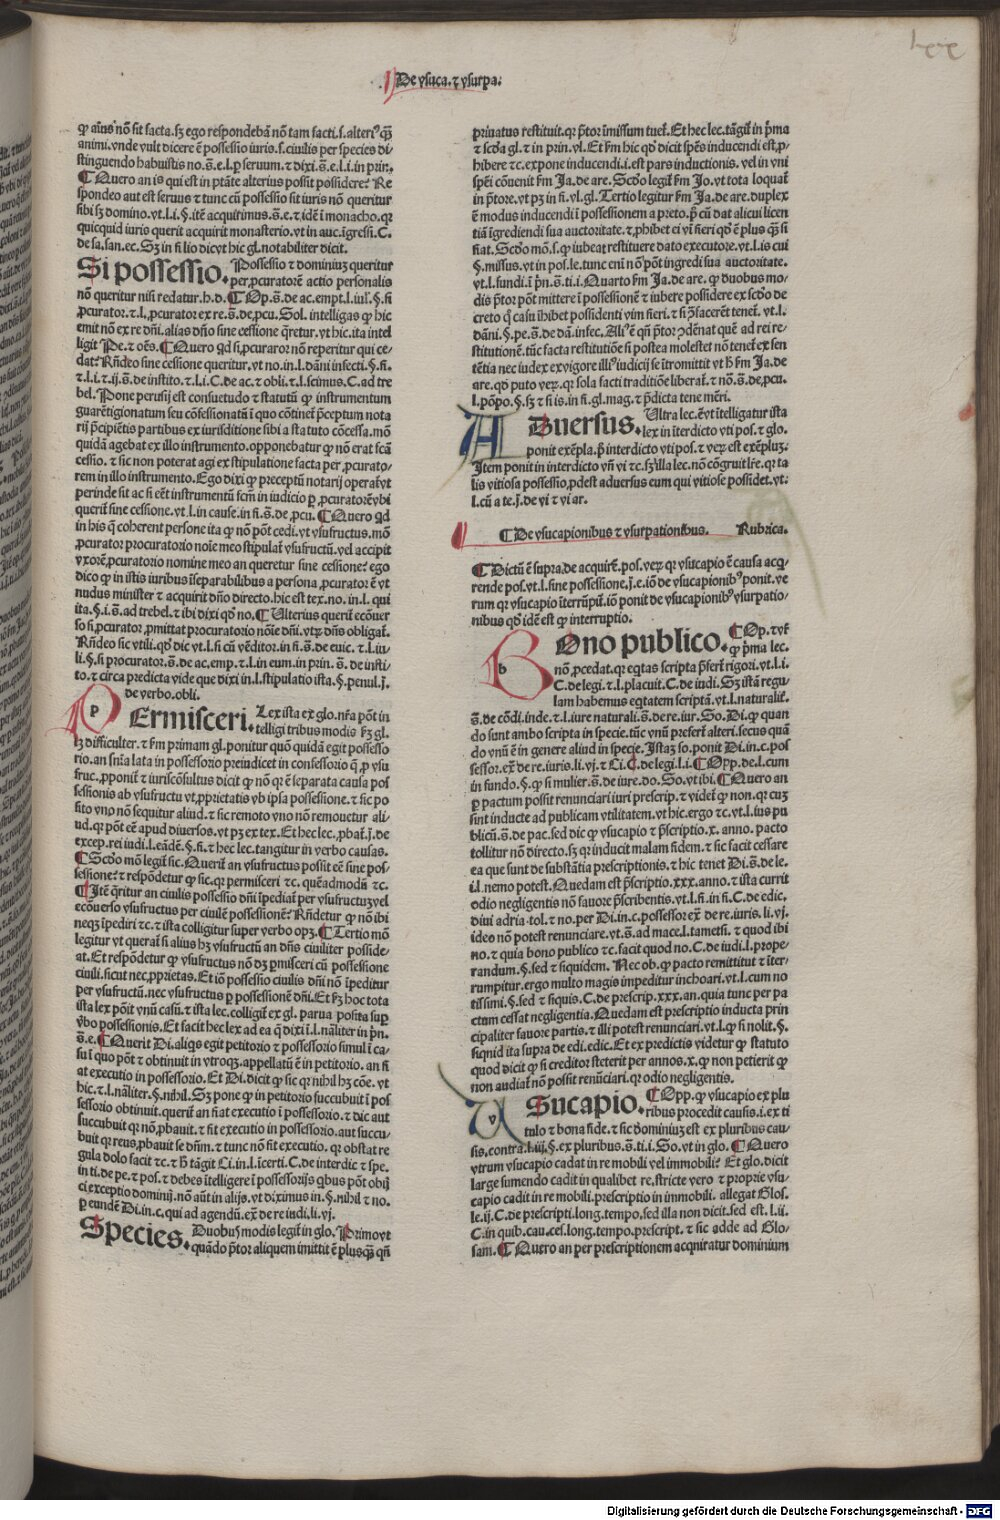 De vsuca. ⁊ vsurpa.
lxx
ꝙ aīus nō sit facta. sꝫ ego respondebā nō tam facti. s. alteriꝰ qꝫ
animi. vnde vult dicere ē possessio iuris. s. ciuilis per species di-
stinguendo habuistis no. s̄. e. l. ꝑ seruum. ⁊ dixi. s̄. e. l. i. in prin.
¶ Quero an is qui est in ptāte alterius possit possidere? Re
spondeo aut est seruus ⁊ tunc cū possessio sit iuris nō queritur
sibi sꝫ domino. vt. l. i. §. itē acquirimus. s̄. e. ⁊ idē ī monacho. qꝛ
quicquid iuris querit acquirit monasterio. vt in auc. ingressi. C.
de sa. san. ec. Sꝫ in fi lio dicvt hic gl. notabiliter dicit.
Si possessio. Possessio ⁊ dominiuꝫ queritur
per ꝓcuratorē actio personalis
nō queritur nisi redatur. h. d. ¶ Op. s̄. de ac. empt. l. iul. §. si
ꝓcurator. ⁊ l. ꝓcurator ex re. s̄. de. ꝓcu. Sol. intelligas ꝙ hic
emit nō ex re dn̄i. alias dn̄o sine cessione q̄retur. vt hic. ita intel
ligit Pe. ⁊ oēs. ¶ Quero qd si ꝓcuraror nō reperitur qui ce-
dat? Rn̄deo sine cessione queritur. vt no. in. l. dāni infecti. §. fi.
⁊. l. i. ⁊. ij. s̄. de instito. ⁊. l. i. C. de ac. ⁊ obli. ⁊. l. scimus. C. ad tre
bel. Pone perusij est consuetudo ⁊ statutū ꝙ instrumentum
guarētigionatum seu cōfessionatū ī quo cōtinet p̄ceptum nota
rij p̄cipiētis partibus ex iurisditione sibi a sta tuto cōcessa. mō
quidā agebat ex illo instrumento. opponebatur ꝙ nō erat fcā
cessio. ⁊ sic non poterat agi ex stipulatione facta per ꝓcurato-
rem in illo instrumento. Ego dixi ꝙ preceptū notarij operaꝶvt
perinde sit ac si eēt instrumentū fcm̄ in iudicio ꝑ ꝓcuratorē vbi
querit̄ sine cessione. vt. l. in cause. in fi. s̄. de. ꝓcu. ¶ Quero qd
in his q̄ coherent persone ita ꝙ nō pōt cedi. vt vsufructus. mō
ꝓcurator procuratorio noīe meo stipulat̄ vsufructū. vel accipit
vxorē, ꝓcuratorio nomine meo an queretur sine cessione? ego
dico ꝙ in istis iuribus īseparabilibus a persona ꝓcurator ē vt
nudus minister ⁊ acquirit dn̄o directo. hic est tex. no. in. l. qui
ita. §. i. s̄. ad trebel. ⁊ ibi dixi qd no. ¶ Vlterius querit̄ ecōuer
so si ꝓcurator ꝓmittat procuratorio nōie dn̄i. vtrꝫ dn̄s obligat̄.
Rn̄deo sic vtili. qd dic vt. l. si cū vēditor. in fi. s̄. de euic. ⁊. l. iu-
li. §. si procurator. s̄. de ac. emp. ⁊. l. in eum. in prin. s̄. de insti-
to. ⁊ circa predicta vide que dixi in. l. stipulatio ista. §. penul. j.
de verbo. obli.
p
Ermisceri. Lex ista ex glo. nr̄a pōt in
telligi tribus modis sꝫ gl.
lꝫ difficulter. ⁊ sm primam gl. ponitur quō quidā egit possesso
rio. an snīa lata in possessorio preiudicet in confessorio q̄ ꝓ vsu
fruc. ꝓponit̄ ⁊ iuriscōsultus dicit ꝙ nō qꝛ ē separata causa pos
sessionis ab vsufructu vt ꝓprietatis vb ipsa possessione. ⁊ sic po
sito vno nō sequitur aliud. ⁊ sic remoto vno nō remouetur ali-
ud. qꝛ pōt eē apud diuersos. vt pꝫ ex tex. Et hec lec. ꝓbat̄. j. de
excep. rei iudi. l. eādē. §. fi. ⁊ hec lec. tangitur in verbo causas.
¶ Scdō mō legit̄ sic. Querit̄ an vsufructus possit eē sine pos-
sessione? ⁊ respōdetur ꝙ sic. qꝛ permisceri ⁊c. quēadmodū ⁊c.
¶ Itē q̄ritur an ciuilis possessio dn̄i īpediat̄ per vsufructuꝫ vel
ecōuerso vsufructus per ciuilē possessionē? Rn̄detur ꝙ nō ibi
neqꝫ īpediri ⁊c. ⁊ ista colligitur super verbo opꝫ. ¶ Tertio mō
legitur vt querat̄ si alius hꝫ vsufructū an dn̄s ciuiliter posside-
at. Et respōdetur ꝙ vsufructus nō dꝫ p̄misceri cū possessione
ciuili. sicut nec ꝓprietas. Et iō possessio ciuilis dn̄i nō īpeditur
per vsufructū. nec vsufructus ꝑ possessionē dn̄i. Et sꝫ hoc tota
ista lex pōit vnū casū. ⁊ ista lec. colligit̄ ex gl. parua posita suꝑ
v̄bo possessionis. Et facit hec lex ad ea q̄ dixi ī. l. nāliter in p̄n.
s̄. e. ¶ Querit Di. aliqs egit petitorio ⁊ possessorio simul ī ca-
su ī quo pōt ⁊ obtinuit in vtroqꝫ. appellatū ē in petitorio. an fi
at executio in possessorio. Et Di. dicit ꝙ sic qꝛ nihil hꝫ cōe. vt
hic. ⁊. l. nāliter. §. nihil. Sꝫ pone ꝙ in petitorio succubuit ī pos
sessorio obtinuit. querit̄ an fiat executio ī possessorio. ⁊ dic aut
succubuit qꝛ nō ꝓbauit. ⁊ fit executio in possessorio. aut succu-
buit qꝛ reus ꝓbauit se dn̄m. ⁊ tunc nō fit executio. qꝛ obstat re
gula dolo facit ⁊c. ⁊ h̄ tāgit Ci. in. l. īcerti. C. de interdic ⁊ spe.
in ti. de pe. ⁊ pos. ⁊ debes ītelligere ī possessorijs qbus pōt obij
ci exceptio dominij. nō aūt in alijs. vt diximus in. §. nihil ⁊ no.
ꝑ eundē Di. in c. qui ad agendū. ex̄ de re iudi. li. vj.
Species. Duobuꝫ modis legit̄ in glo. Primo vt
quādo p̄tor aliquem īmittit ē plusqꝫ qn̄
priuatus restituit. qꝛ p̄tor īmissum tuet̄. Et hec lec. tāgit̄ in p̄ma
⁊ scda gl. ⁊ in prin. vl. Et sm hic qd dicit spēs inducendi est. ꝓ-
hibere ⁊c. expone inducendi. i. est pars inductionis. vel in vni
spēi cōuenit sm Ja. de are. Scdō legit̄ sm Jo. vt tota loquat̄
in p̄tore. vt pꝫ in fi. vl. gl. Tertio legitur sm Ja. de are. duplex
ē modus inducendi ī possessionem a preto. p̄ cū dat alicui licen
tiā īgrediendi sua auctoritate. ⁊ ꝓhibet ei vī fieri qd ē plus qꝫ si
fiat. Scdō mō. s. ꝙ iubeat restituere dato executore. vt. l. is cui
§. missus. vt in pos. le. tunc em̄ nō pōt ingredi sua auctoritate.
vt. l. fundi. ī p̄n. s̄. ti. i. Quarto sm Ja. de are. ꝙ duobus mo-
dis p̄tor pōt mittere ī possessionē ⁊ iubere possidere ex scdo de
creto q̄ casu īhibet possidenti vim fieri. ⁊ si p̄sacerēt tenet̄. vt. l.
dāni. §. pe. s̄. de dā. infec. Aliꝰ ē qn̄ p̄tor ꝯdēnat quē ad rei re-
stitutionē. tūc facta restitutiōe si postea molestet nō tenet̄ ex sen
tētia nec iudex ex vigore illiꝰ iudicij se ītromittit vt h̄ sm Ja. de
are. qd puto verꝫ. qꝛ sola facti traditiōe liberat̄. ⁊ nō. s̄. de. ꝓcu.
l. pōpo. §. sꝫ ⁊ si is. in fi. gl. mag. ⁊ p̄dicta tene mēri.
A
Duersus. Vltra lec. ēvt ītelligatur ista
lex in īterdicto vti pos. ⁊ glo.
ponit exēpla. p̄ interdicto vti pos. ⁊ verꝫ est exēpluꝫ.
Item ponit in interdicto vn̄ vi ⁊c. sꝫ illa lec. nō cōgruit lr̄e. qꝛ ta
lis vitiosa possessio ꝓdest aduersus eum qui vitiose possidet. vt.
l. cū a te. j. de vi ⁊ vi ar.
¶ De vsucapionibus ⁊ vsurpationibus. Rubrica.
¶ Dictū ē supra. de acquirē. pos. verꝫ qꝛ vsucapio ē causa acq-
rende pos. vt. l. sine possessione. j. e. iō de vsucapionibꝰ ponit. ve
rum qꝛ vsucapio īterrūpit̄. iō ponit de vsucapionibꝰ vsurpatio-
nibus qd idē est ꝙ interruptio.
b
Ono publico. ¶ Op. ⁊ vr̄
ꝙ p̄ma lec.
nō ꝓcedat. qꝛ eqtas scripta p̄fert̄ rigori. vt. l. i.
C. de legi. ⁊. l. placuit. C. de iudi. Sꝫ istā regu
lam habemus eqtatem scriptā. vt. l. naturalit̄.
s̄. de cōdi. inde. ⁊. l. iure naturali. s̄. de re. iur. So. Di. ꝙ quan
do sunt ambo scripta in specie. tūc vnū prefert̄ alteri. secus quā
do vnū ē in genere aliud in specie. Istaꝫ so. ponit Di. in c. pos
sessor. ex̄. de re. iuris. li. vj. ⁊ Ci. C. de legi. l. i. ¶ Opp. de. l. cum
in fundo. §. ꝙ si mulier. s̄. de iure. do. So. vt ibi. ¶ Quero an
ꝑ pactum possit renunciari iuri prescrip. ⁊ videt̄ ꝙ non. qꝛ cuꝫ
sint inducte ad publicam vtilitatem. vt hic. ergo ⁊c. vt. l. ius pu
blicū. s̄. de pac. sed dic ꝙ vsucapio ⁊ p̄scriptio. x. anno. pacto
tollitur nō directo. sꝫ qꝛ inducit malam fidem. ⁊ sic facit cessare
ea que sunt de substātia prescriptionis. ⁊ hic tenet Di. s̄. de le.
i. l. nemo potest. Quedam est p̄scriptio. xxx. anno. ⁊ ista currit
odio negligentis nō fauore p̄scribentis. vt. l. fi. in fi. C. de edic.
diui adria. tol. ⁊ no. per Di. in. c. possessor ex̄ de re. iuris. li. vj.
ideo nōn potest renunciare. vt. s̄. ad mace. l. tametsi. ⁊ quod ibi
no. ⁊ quia bono publico ⁊c. facit quod no. C. de iudi. l. prope
randum. §. sed ⁊ siquidem. Nec ob. ꝙ pacto remittitut ⁊ īter-
rumpitur. ergo multo magis impeditur inchoari. vt. l. cum no
tissimi. §. sed ⁊ siquis. C. de prescrip. xxx. an. quia tunc per pa
ctum cessat negligentia. Quedam est prescriptio inducta prin
cipaliter fauore partis. ⁊ illi potest renunciari. vt. l. ꝙ si nolit. §.
siqnid ita supra de edi. edic. Et ex predictis videtur ꝙ statuto
quod dicit ꝙ si creditor steterit per annos. x. ꝙ non petierit ꝙ
non audiat̄ nō possit renūciari. qꝛ odio negligentis.
v
Sucapio. ¶ Opp. ꝙ vsucapio ex plu
ribus procedit causis. i. ex ti
tulo ⁊ bona fide. ⁊ sic dominiuꝫ est ex pluribus cau-
sis. contra. l. iij. §. ex pluribus. s̄. ti. i. So. vt in glo. ¶ Quero
vtrum vsucapio cadat in re mobili vel immobili? Et glo. dicit
large sumendo cadit in qualibet re. stricte vero ⁊ proprie vsu-
capio cadit in re mobili. prescriptio in immobili. allegat Glos.
le. ij. C. de prescripti. long. tempo. sed illa non dicit. sed est. l. ii.
C. in quib. cau. ces. long. tempo. prescript. ⁊ sic adde ad Glo-
sam. ¶ Quero an per prescriptionem acqniratur dominium
Digitalisierung gefördert durch die Deutsche Forschungsgemeinschaft - DFG